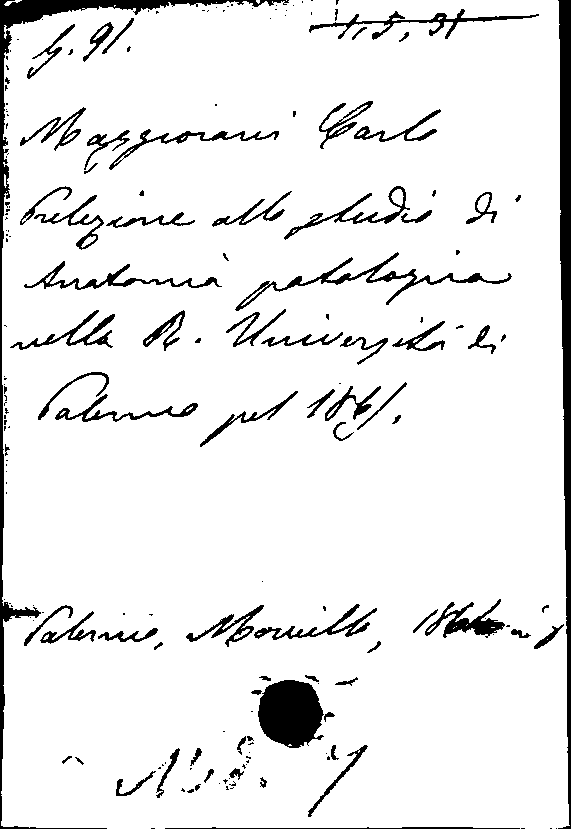 G. 91. 1, 5, 31
Maggiorani Carlo
Prelezione allo studio di
Anatomia patologica
nella R. Università di
Palermo pel 1861.
Palermo, Morvillo, 186 in 8
Misc. 7